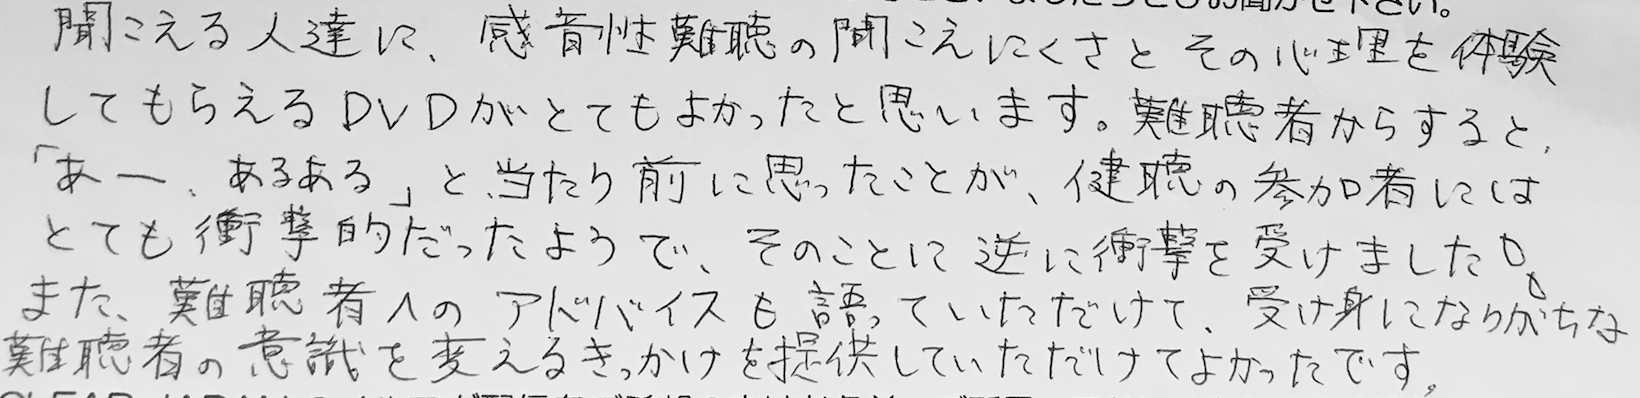 聞こえる人達に、感音性難聴の聞こえにくさとその心理を体験
してもらえるDVDがとてもよかったと思います。難聴者からすると、
「あー、あるある」と、当たり前に思ったことが、健聴の参加者には
とても衝撃的だったようで、そのことに逆に衝撃を受けました。
また、難聴者へのアドバイスも語っていただけて、受け身になりがちな
難聴者の意識を変えるきっかけを提供していただけてよかったです。